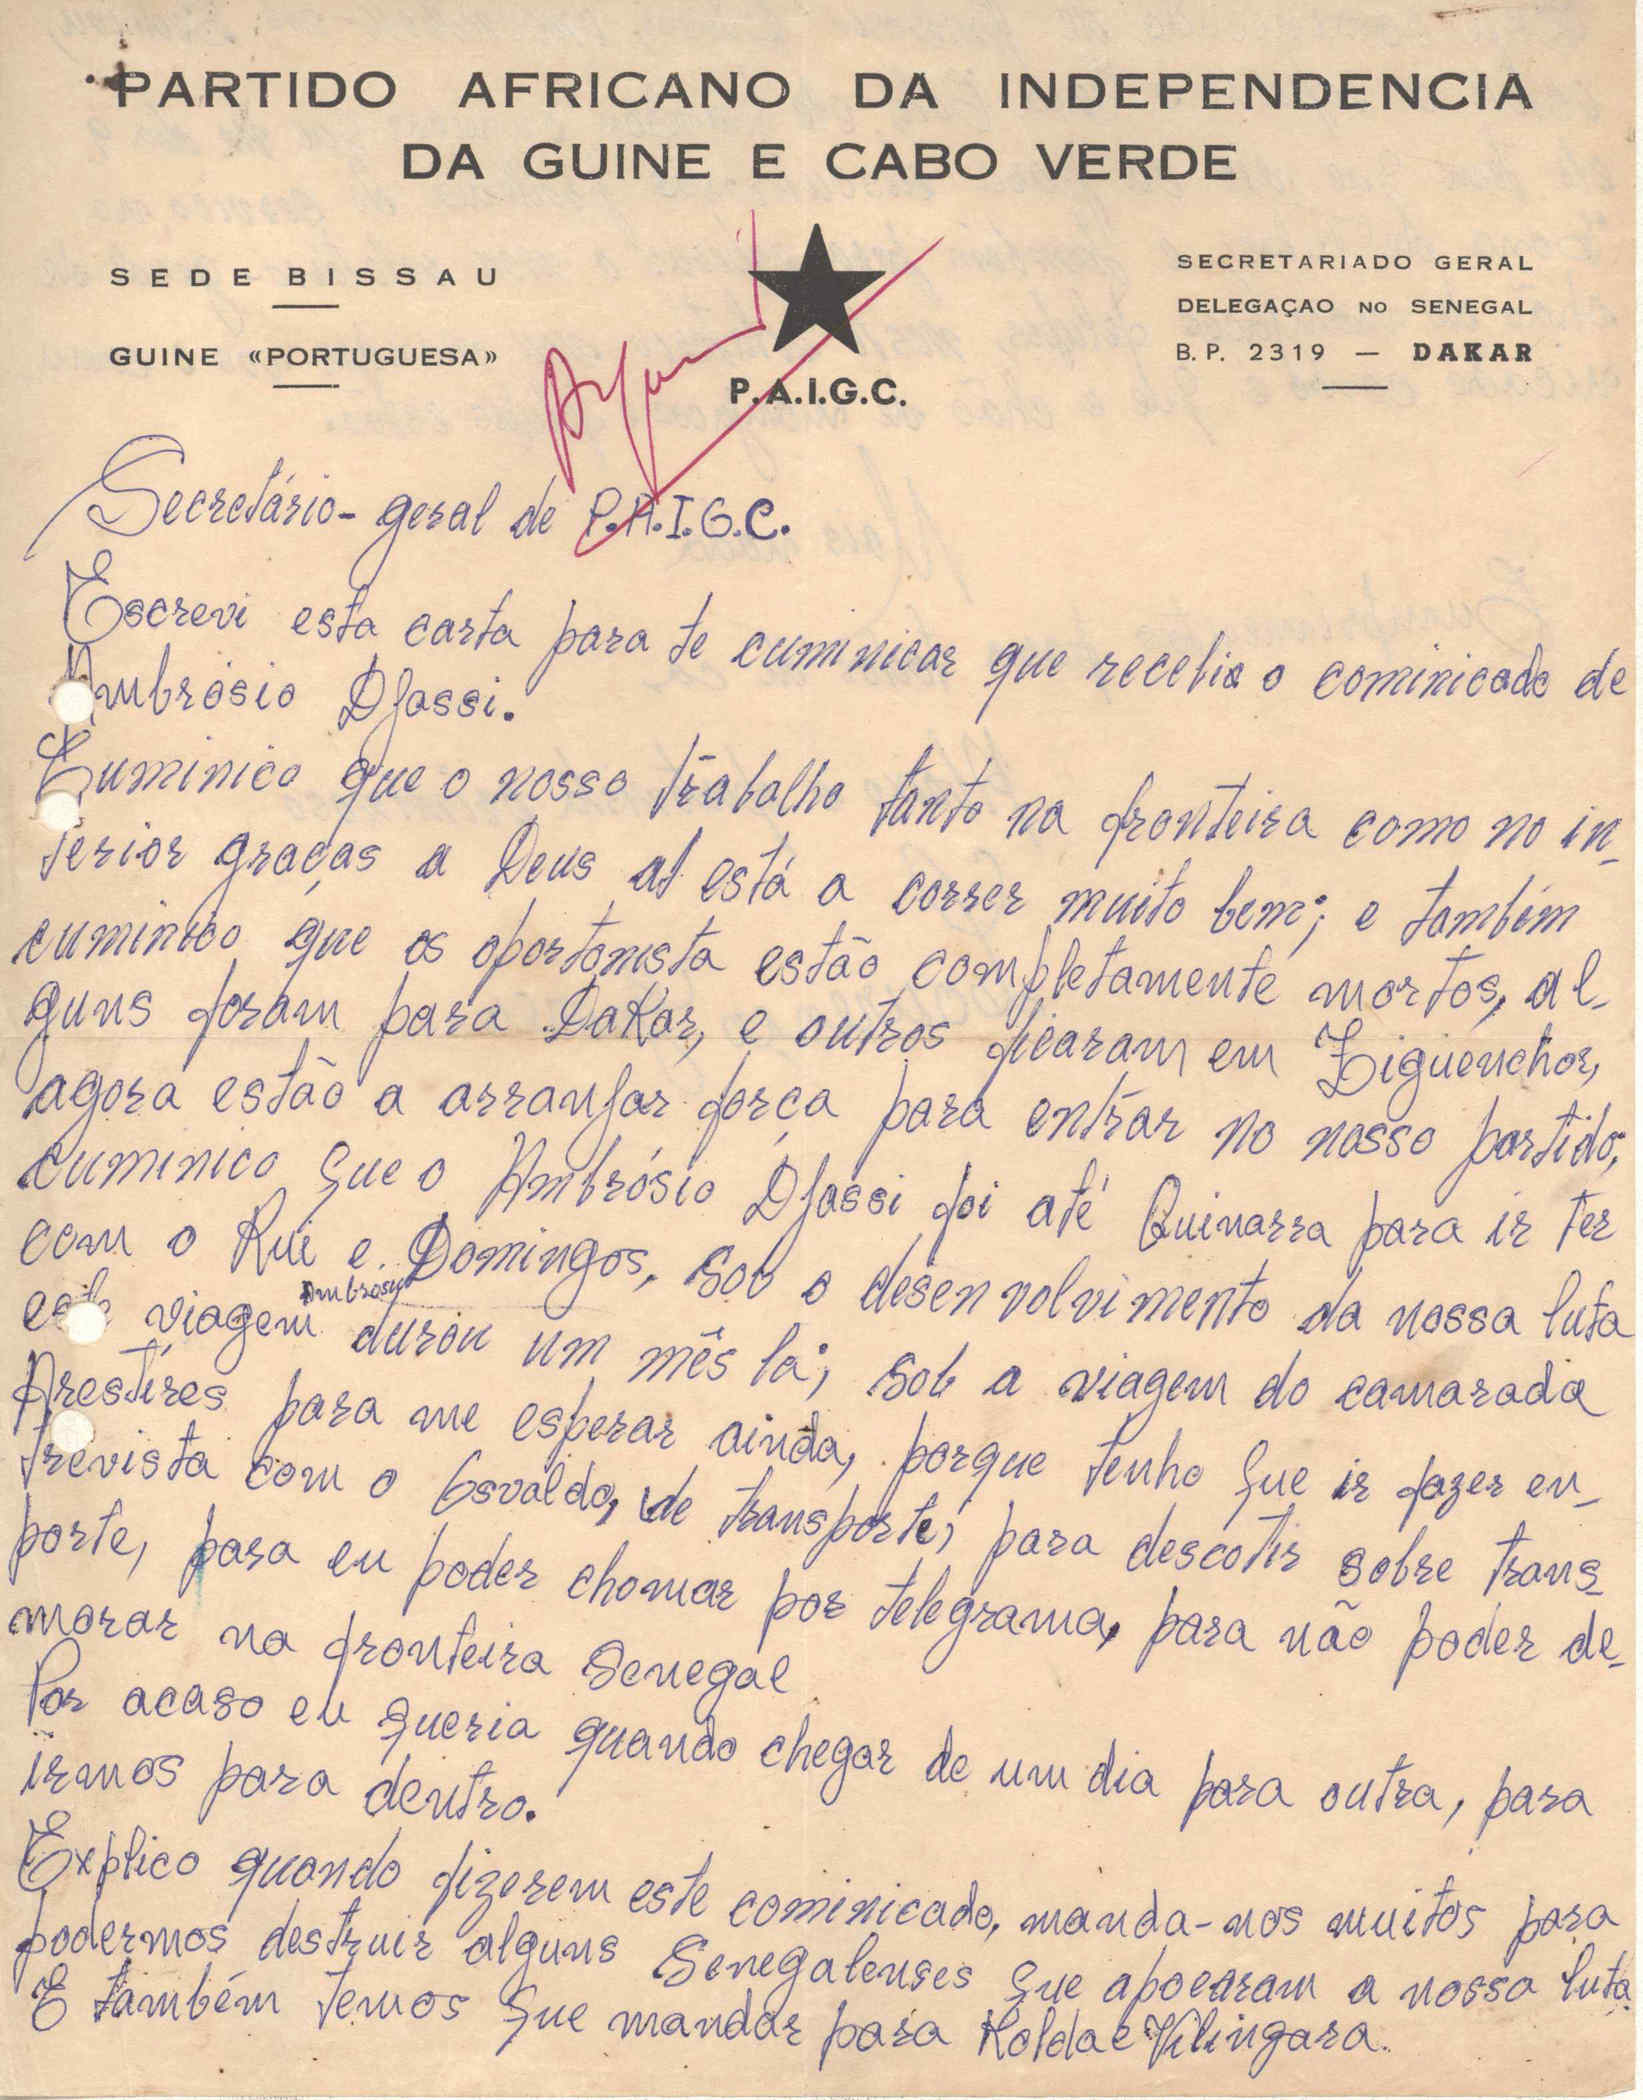 PARTIDO AFRICANO DA INDEPENDENCIA
DA GUINE E CABO VERDE
SEDE BISSAU
GUINE «PORTUGUESA»
P.A.I.G.C.
SECRETARIADO GERAL
DELEGAÇAO NO SENEGAL
B. P. 2319 — DAKAR
Secretário-geral de P.A.I.G.C.
Escrevi esta carta para te cuminicar que recebia o cominicado de
Ambrósio Djassi.
Cuminico que o nosso trabalho tanto na fronteira como no in-
terior graças a Deus at está a correr muito bem; e também
cuminico que os oportonista estão completamente mortos, al-
guns foram para Dakar, e outros ficaram em Ziguenchor,
agora estão a arranjar força para entrar no nosso partido;
cuminico que o Ambrósio Djassi foi até Quinarra para ir ter
com o Rui e Domingos, sob o desenvolvimento da nossa luta
este viagem Ambrosio durou um mês lá; sob a viagem do camarada
Arestires para me esperar ainda, porque tenho que ir fazer en-
trevista com o Osvaldo, de transporte; para descotir sobre trans-
porte, para eu poder chomar por telegrama, para não poder de-
morar na fronteira Senegal
Por acaso eu queria quando chegar de um dia para outra, para
irmos para dentro.
Explico quando fizerem este cominicado, manda-nos muitos para
podermos destruir alguns Senegalenses que apoearam a nossa luta
E também temos que mandar para Kolda e Vilingara.